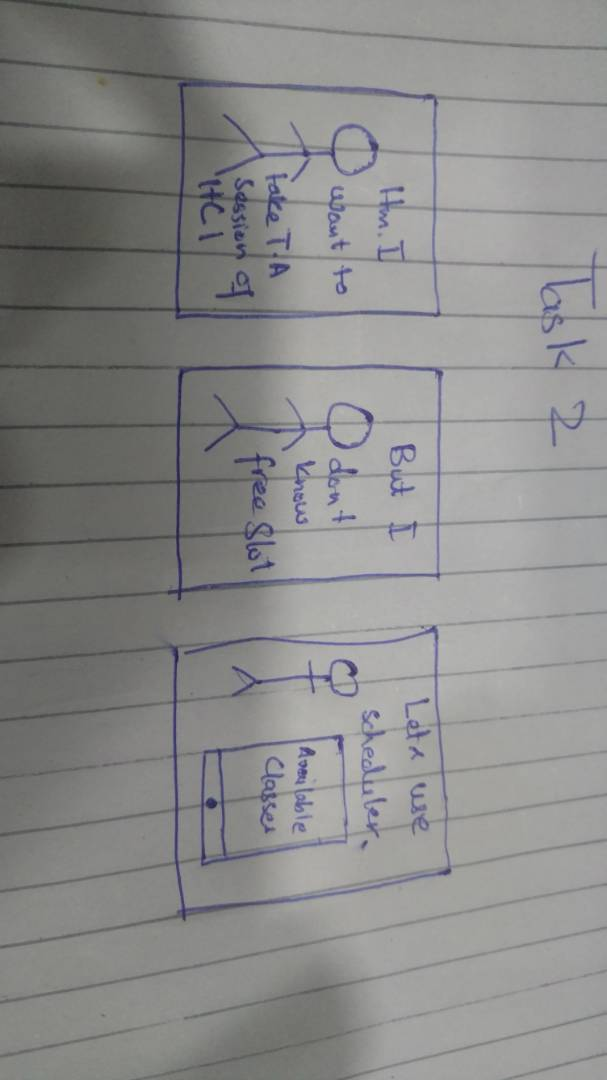 Task 2
Hm. I
want to
take T.A
session of
HCI
But I
don't
know
free Slot
Lets use
scheduler.
Available
Classes